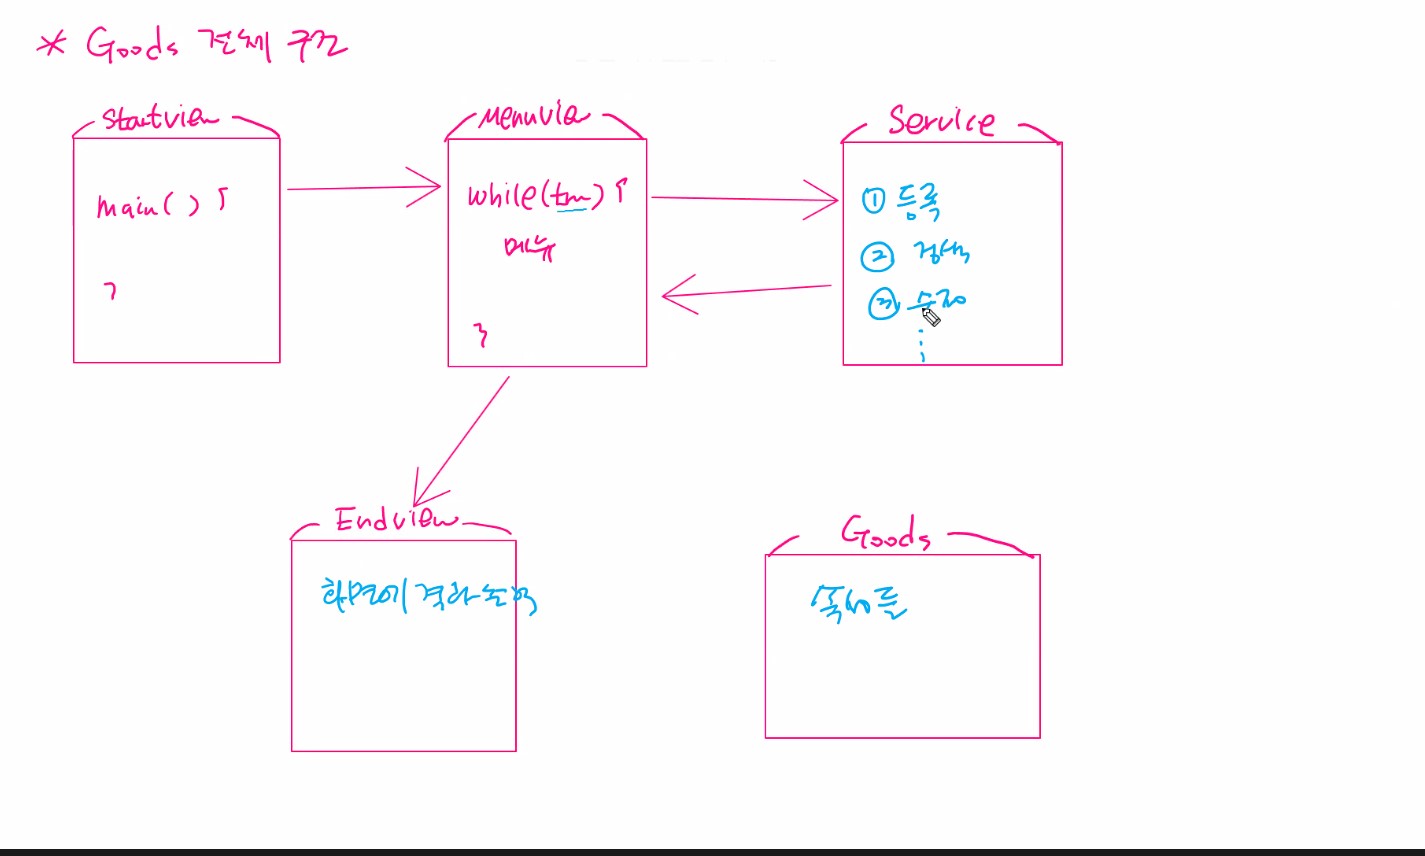 * Goods 전체 구조
Startview
main() {
}
MenuView
while(true) {
메뉴
}
Service
① 등록
② 검색
③ 수정
⋮
Endview
화면에 결과출력
Goods
속성들